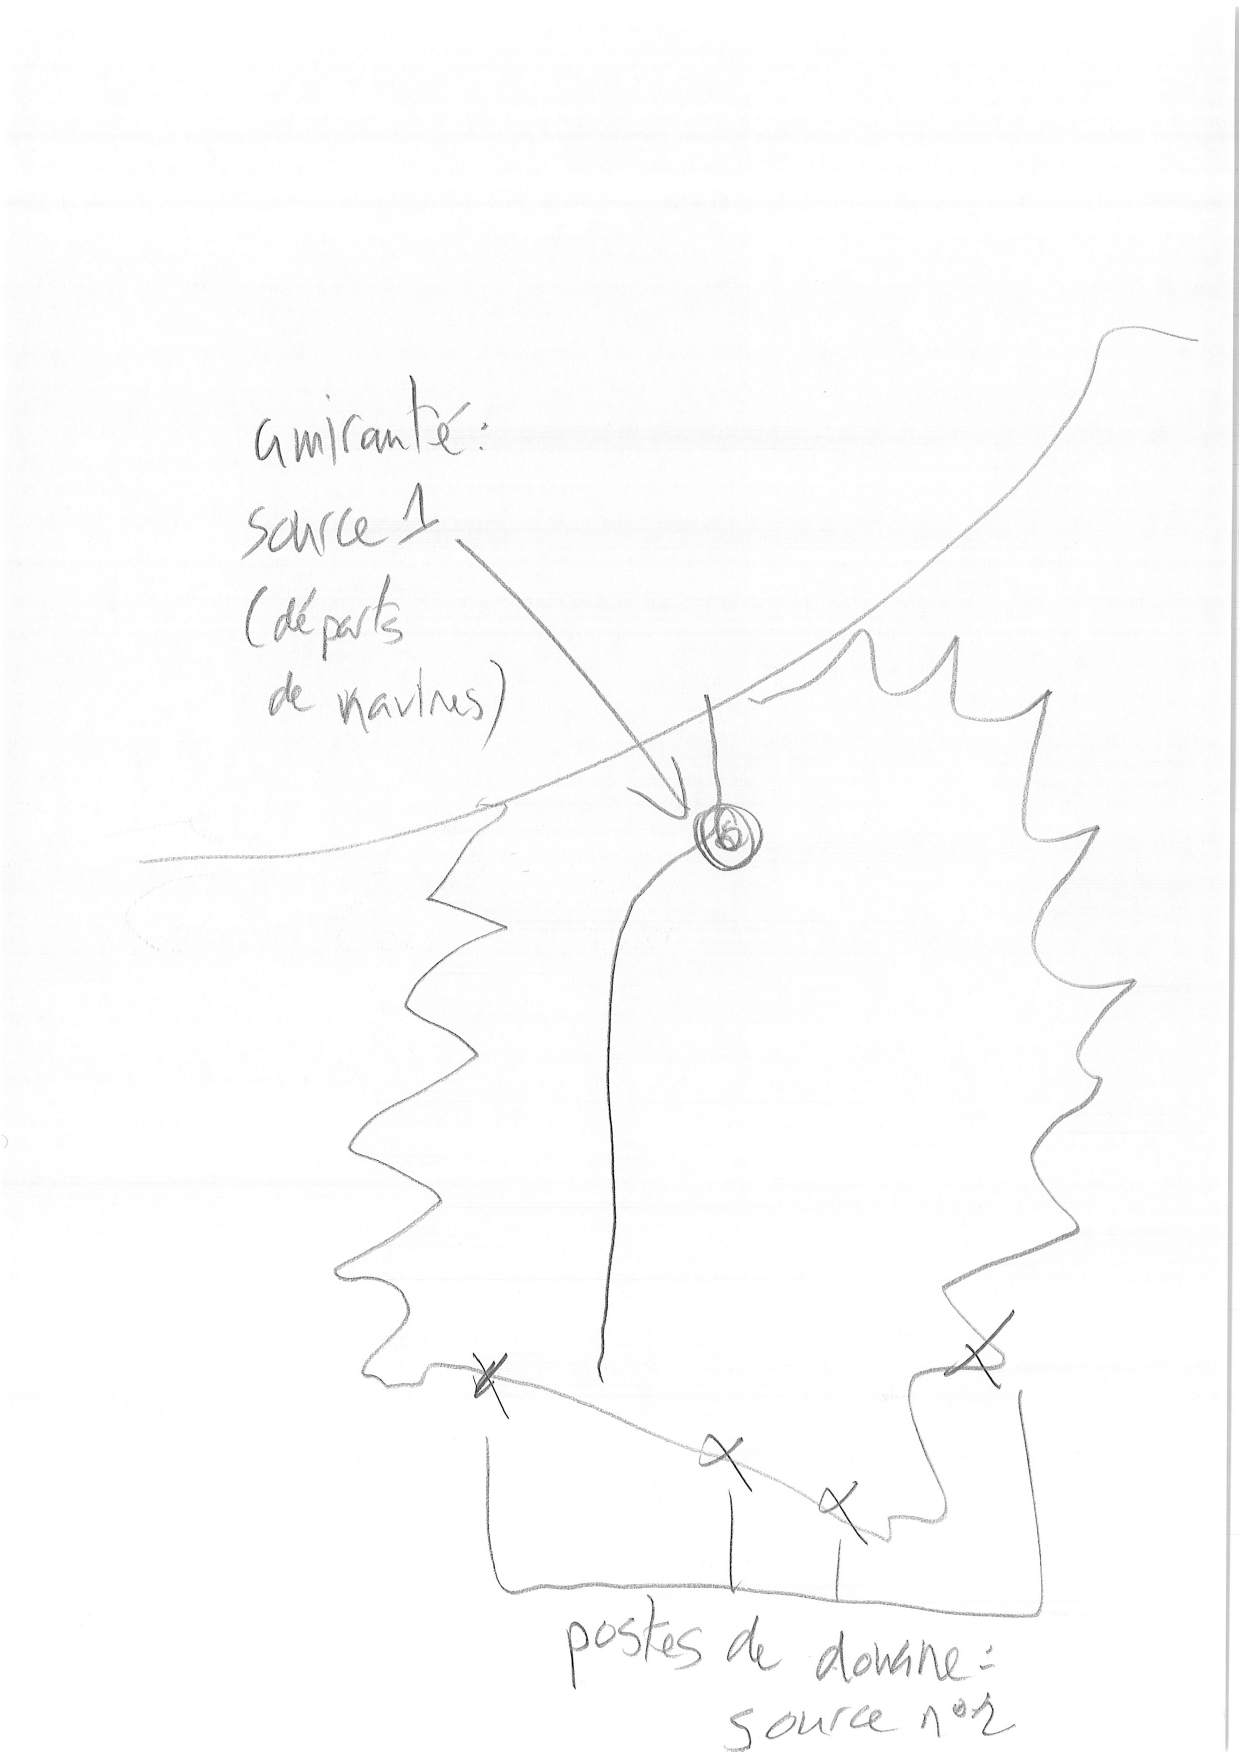 amirauté:
source 1
(départs
de navires)
postes de douane:
source n°2